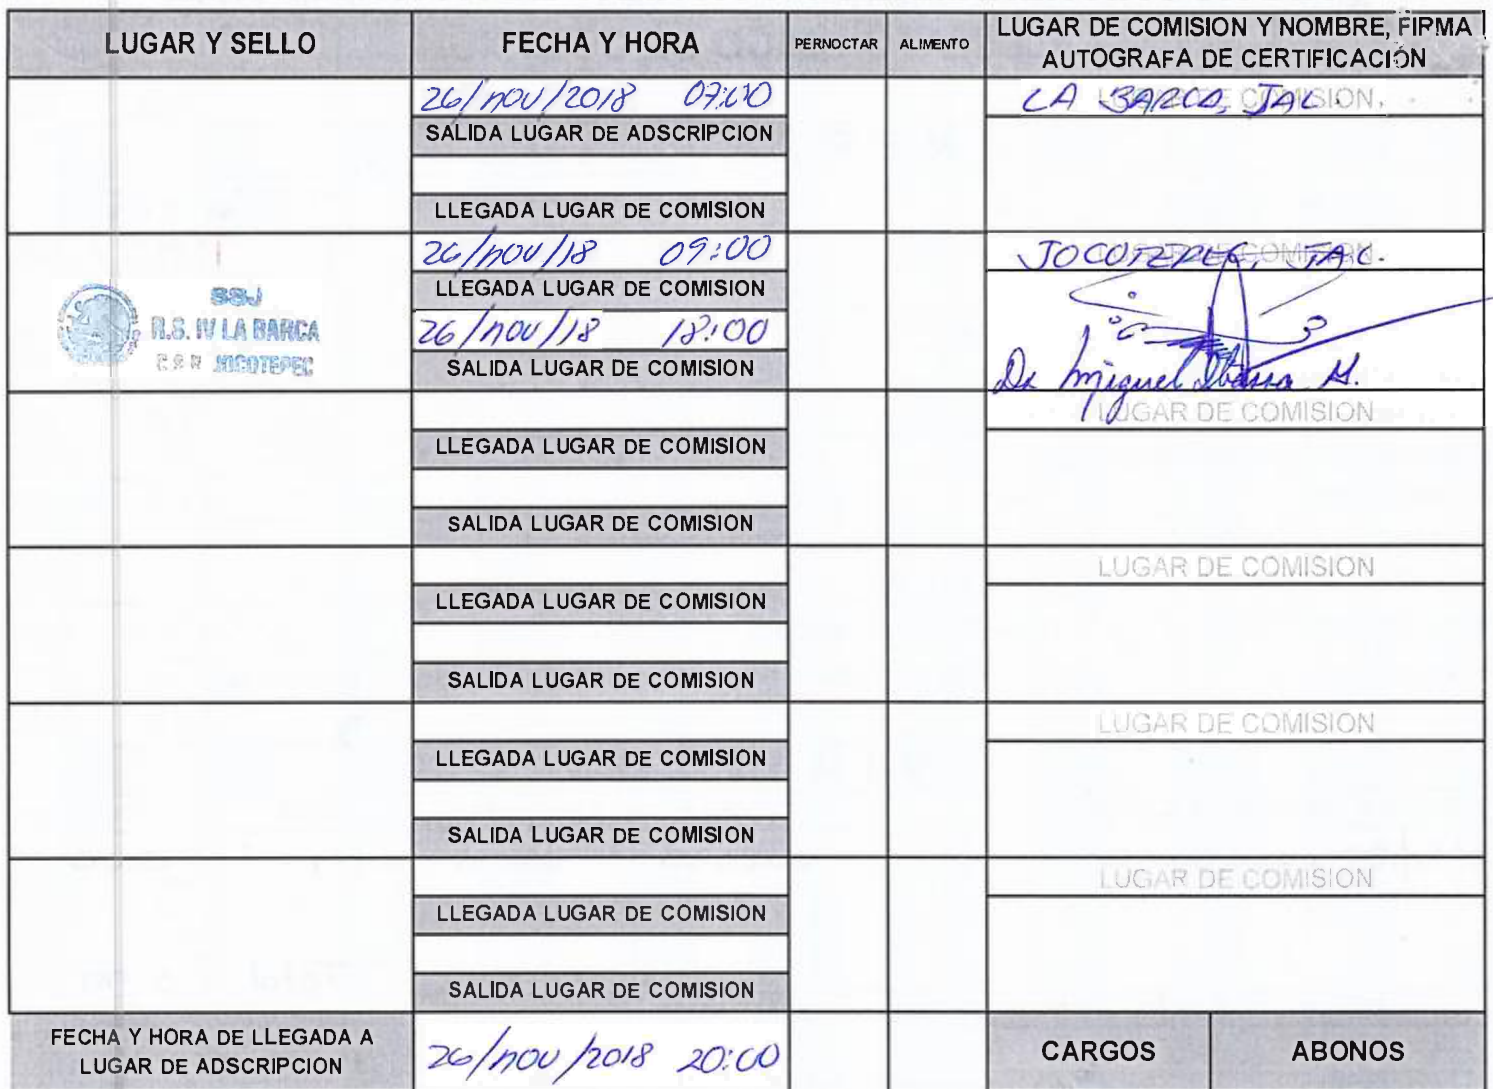 LUGAR Y SELLO
FECHA Y HORA
PERNOCTAR
ALIMENTO
LUGAR DE COMISION Y NOMBRE, FIRMA
AUTOGRAFA DE CERTIFICACIÓN
26/nov/2018 07:00
LUGAR DE COMISION
LA BARCA, JAL.
SALIDA LUGAR DE ADSCRIPCION
LLEGADA LUGAR DE COMISION
26/nov/18 09:00
LUGAR DE COMISION
JOCOTEPEC, JAL.
LLEGADA LUGAR DE COMISION
SSJ
R.S. IV LA BARCA
JOCOTEPEC
26/nov/18 18:00
SALIDA LUGAR DE COMISION
Dr Miguel Ibarra M.
LUGAR DE COMISION
LLEGADA LUGAR DE COMISION
SALIDA LUGAR DE COMISION
LUGAR DE COMISION
LLEGADA LUGAR DE COMISION
SALIDA LUGAR DE COMISION
LUGAR DE COMISION
LLEGADA LUGAR DE COMISION
SALIDA LUGAR DE COMISION
LUGAR DE COMISION
LLEGADA LUGAR DE COMISION
SALIDA LUGAR DE COMISION
FECHA Y HORA DE LLEGADA A
LUGAR DE ADSCRIPCION
26/nov/2018 20:00
CARGOS
ABONOS